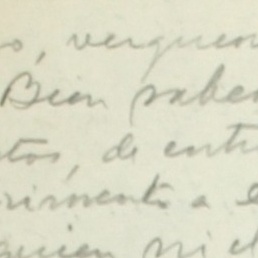 o, verguen
Bien saben
tos, de entr
rimento a e
quien ni el